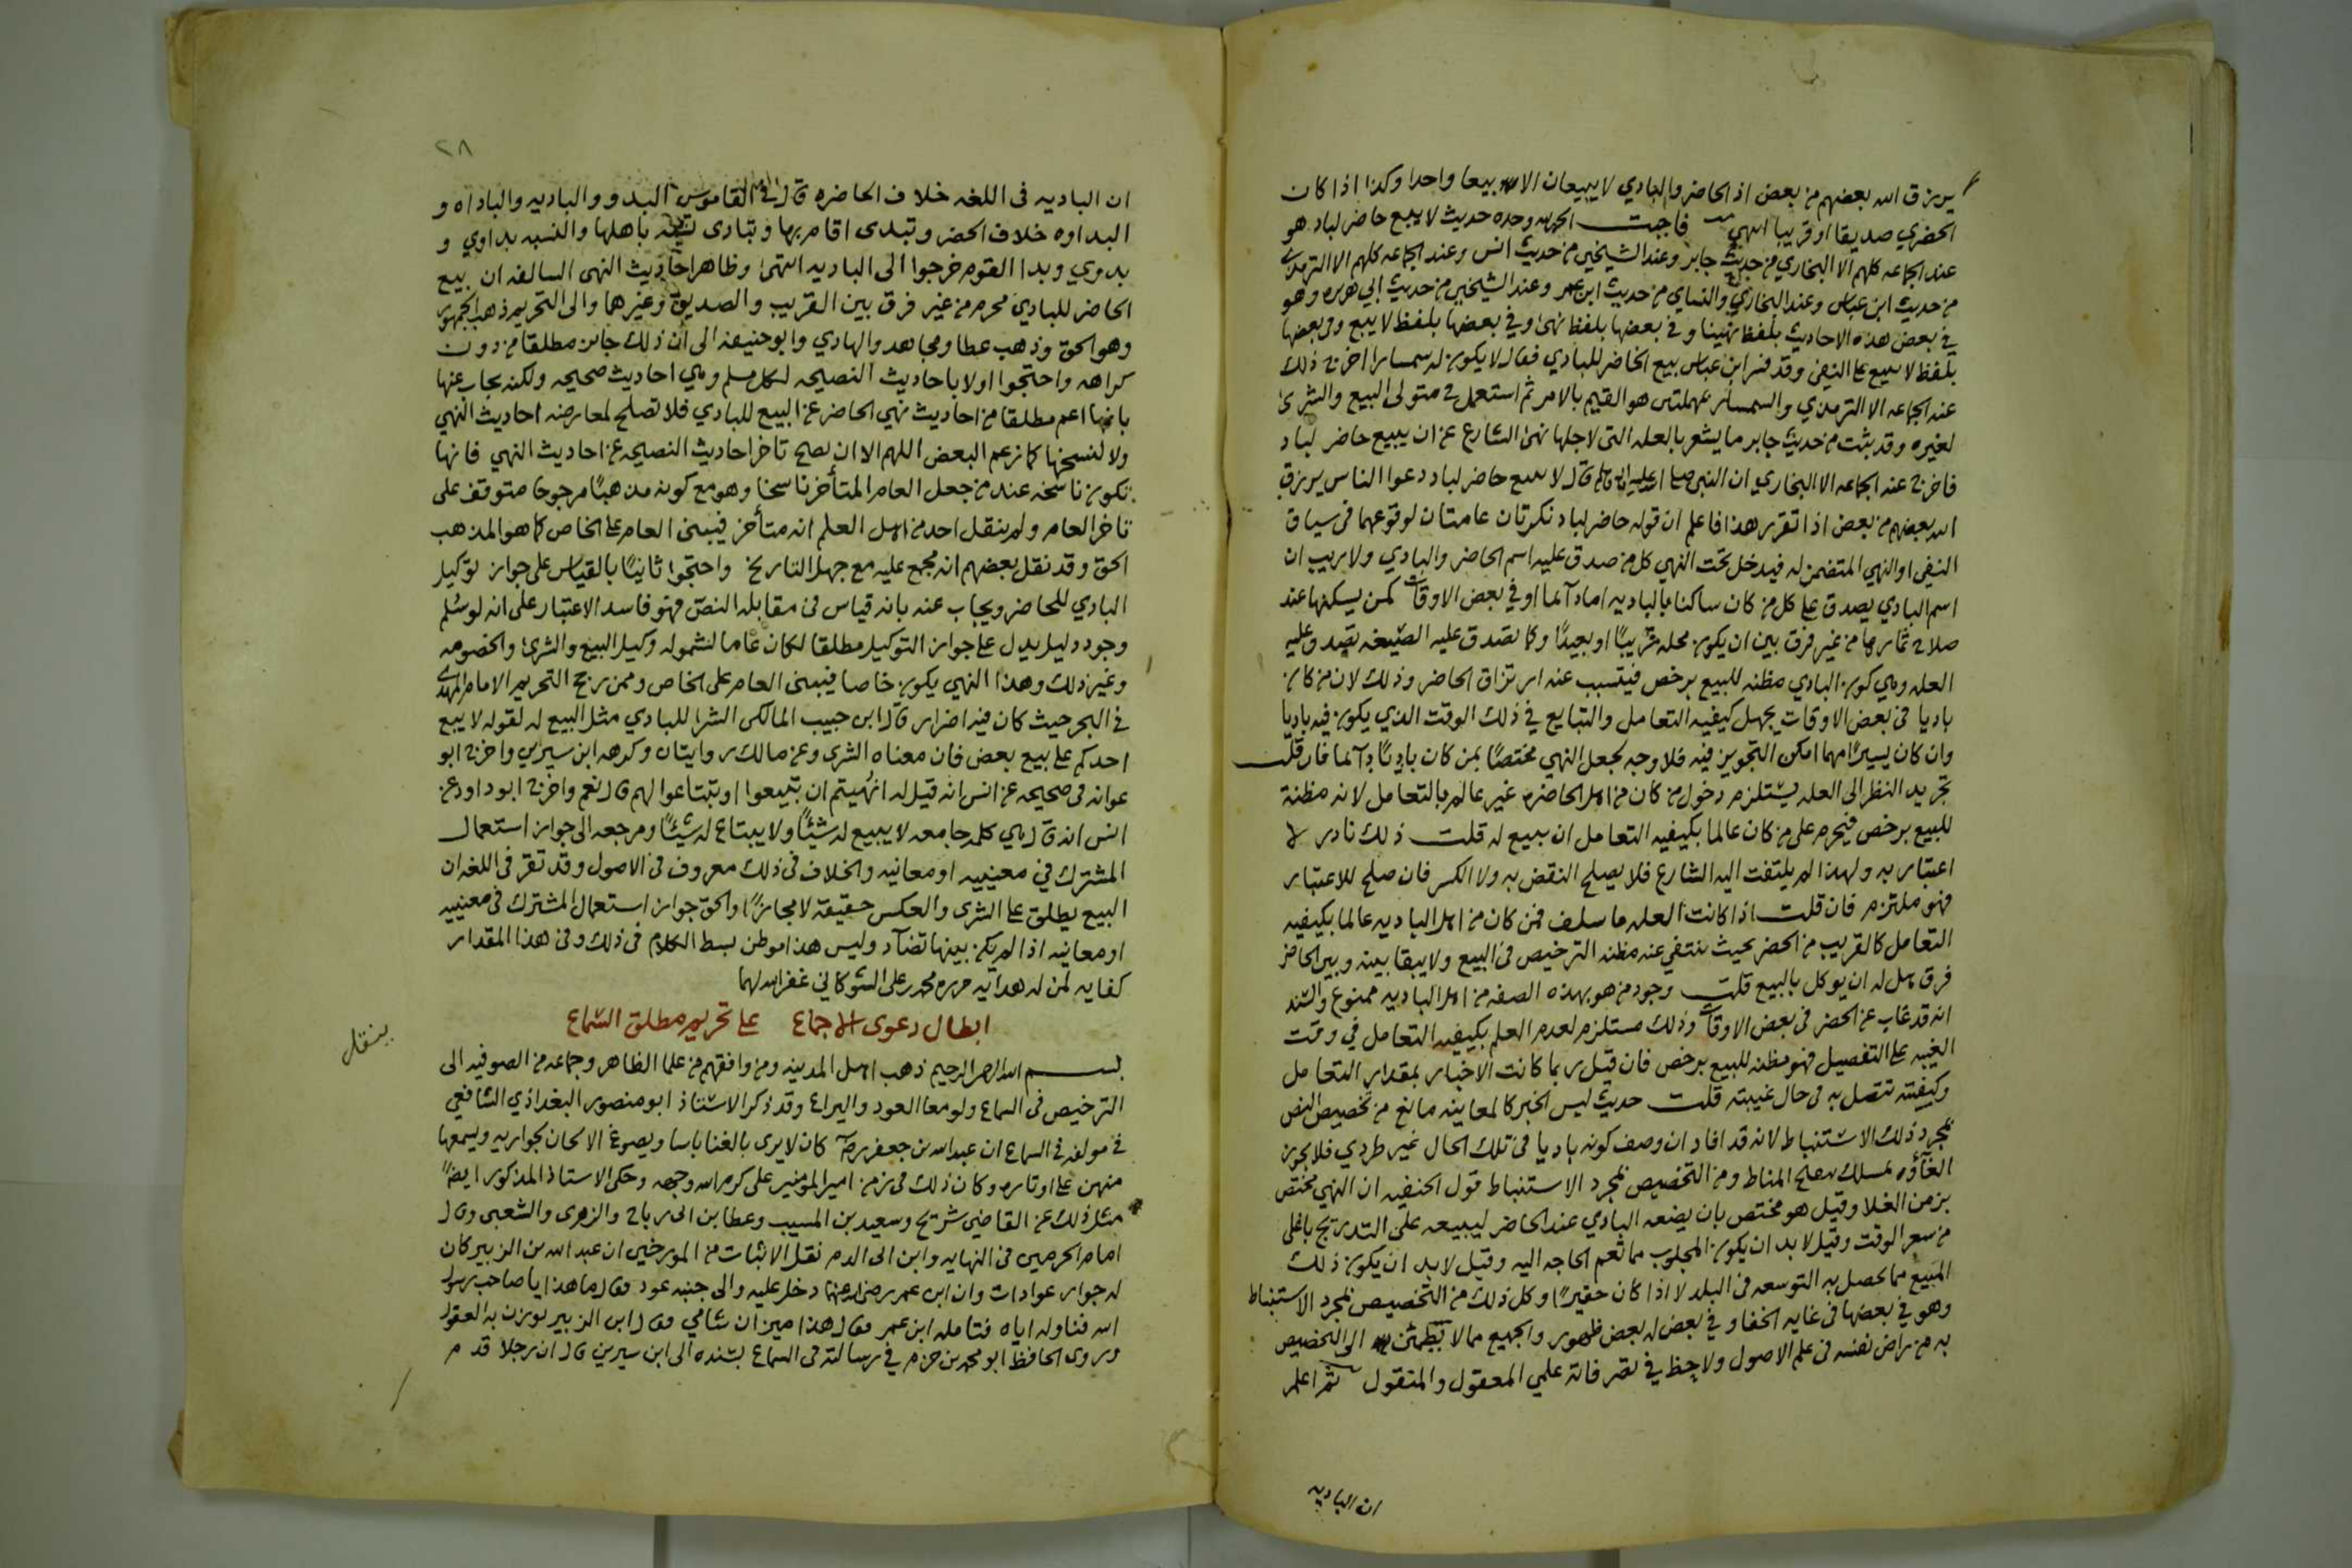 يرزق الله بعضهم من بعض اذ الحاضر والبادي لا يبيعان الا بيعا واحدا وكذا اذا كان
الحضري صديقا او قريبا انتهى فاجبت الحمد لله وحده حديث لا يبع حاضر لباد هو
عند الجماعه كلهم الا البخاري من حديث جابر وعند الشيخين من حديث انس وعند الجماعه كلهم الا الترمذي
من حديث ابن عباس وعند البخاري والنساي من حديث ابن عمر وعند الشيخين من حديث ابي هريره وهو
في بعض هذه الاحاديث بلفظ نهينا وفي بعضها بلفظ نهى وفي بعضها بلفظ لا يبع وفي بعضها
بلفظ لا يبيع على النفي وقد فسر ابن عباس بيع الحاضر للبادي فقال لا يكون له سمسارا اخرج ذلك
عند الجماعه الا الترمذي والسمسار بمهملتين هو القيم بالامر ثم استعمل في متولي البيع والشرى
لغيره وقد ثبت من حديث جابر ما يشعر بالعله التي لاجلها نهى الشارع عن ان يبيع حاضر لباد
فاخرج عند الجماعه الا البخاري ان النبي صلى الله عليه واله وسلم قال لا يبيع حاضر لباد دعوا الناس يرزق
الله بعضهم من بعض اذا تقرر هذا فاعلم ان قوله حاضر لباد نكرتان عامتان لوقوعهما في سياق
النفي او النهي المتضمن له فيدخل تحت النهي كل من صدق عليه اسم الحاضر والبادي ولا ريب ان
اسم البادي يصدق على كل من كان ساكنا بالباديه اما دآئما او في بعض الاوقات كمن يسكنها عند
صلاح ثمارها من غير فرق بين ان يكون محله قريبًا او بعيدًا وكما تصدق عليه الصيغه تصدق عليه
العله وهي كون البادي مظنه للبيع برخص فيتسبب عنه ارتزاق الحاضر وذلك لان من كان
باديا في بعض الاوقات يجهل كيفيه التعامل والتبايع في ذلك الوقت الذي يكون فيه باديا
وان كان يسيرًا مهما امكن التجويز فيه فلا وجه لجعل النهي مختصًا بمن كان باديًا دآئما فان قلت
تجريد النظر الى العله يستلزم دخول من كان من اهل الحاضره غير عالم بالتعامل لانه مظنة
للبيع برخص فيحرم على من كان عالما بكيفيه التعامل ان يبيع له قلت ذلك نادر لا
اعتبار به ولهذا لم يلتفت اليه الشارع فلا يصلح النقض به ولا الكسر فان صلح للاعتبار
فهو ملتزم فان قلت اذا كانت العله ما سلف فمن كان من اهل الباديه عالما بكيفيه
التعامل كالقريب من الحضر بحيث تنتفي عنه مظنه الترخيص في البيع ولا يبقا بينه وبين الحاضر
فرق هل له ان يوكل بالبيع قلت وجود من هو بهذه الصفه من اهل الباديه ممنوع والسند
انه قد غاب عن الحضر في بعض الاوقات وذلك مستلزم لعدم العلم بكيفيه التعامل في وقت
الغيبه على التفصيل فهو مظنه للبيع برخص فان قيل ربما كانت الاخبار بمقدار التعامل
وكيفيته تتصل به في حال غيبته قلت حديث ليس الخبر كالمعاينه مانع من تخصيص النص
بمجرد ذلك الاستنباط لانه قد افاد ان وصف كونه باديا في تلك الحال غير طردي فلا يجوز
الغآؤه بمسلك تنقيح المناط ومن التخصيص بمجرد الاستنباط قول الحنفيه ان النهي مختص
بزمن الغلا وقيل هو مختص بان يضعه البادي عند الحاضر ليبيعه على التدريج باغلى
من سعر الوقت وقيل لا بد ان يكون المجلوب مما تعم الحاجه اليه وقيل لا بد ان يكون ذلك
المبيع مما يحصل به التوسعه في البلد لا اذا كان حقيرًا وكل ذلك من التخصيص بمجرد الاستنباط
وهو في بعضها في غايه الخفا وفي بعض له بعض ظهور والجميع مما لا يطمئن الى التخصيص
به من راض نفسه في علم الاصول ولاحظ في تصرفاته علمي المعقول والمنقول ثم اعلم
ان الباديه
٢٨
ان الباديه في اللغه خلاف الحاضره قال في القاموس البدو والباديه والباداه و
البداوه خلاف الحضر وتبدى اقام بها وتبادى تشبه باهلها والنسبه بداوي و
بدوي وبدا القوم خرجوا الى الباديه انتهى وظاهر احاديث النهي السالفه ان بيع
الحاضر للبادي محرم من غير فرق بين القريب والصديق وغيرهما والى التحريم ذهب الجمهور
وهو الحق وذهب عطا ومجاهد والهادي وابو حنيفه الى ان ذلك جائز مطلقا من دون
كراهه واحتجوا اولا باحاديث النصيحه لكل مسلم وهي احاديث صحيحه ولكنه يجاب عنها
بانها اعم مطلقا من احاديث نهي الحاضر عن البيع للبادي فلا تصلح لمعارضه احاديث النهي
ولا لنسخها كما زعم البعض اللهم الا ان يصح تاخر احاديث النصيحه عن احاديث النهي فانها
تكون ناسخه عند من جعل العام المتأخر ناسخا وهو مع كونه مذهبًا مرجوحا متوقف على
تاخر العام ولم ينقل احد من اهل العلم انه متأخر فيبنى العام على الخاص كما هو المذهب
الحق وقد نقل بعضهم انه مجمع عليه مع جهل التاريخ واحتجوا ثانيًا بالقياس على جواز توكيل
البادي للحاضر ويجاب عنه بانه قياس في مقابله النصّ فهو فاسد الاعتبار على انه لو سُلم
وجود دليل يدل على جواز التوكيل مطلقا لكان عاما لشموله وكيل البيع والشرى والخصومه
وغير ذلك وهذا النهي يكون خاصا فيبنى العام على الخاص وممن رجح التحريم الامام المهدي
في البحر حيث كان فيه اضرار قال ابن حبيب المالكي الشرا للبادي مثل البيع له لقوله لا يبع
احدكم على بيع بعض فان معناه الشرى وعن مالك روايتان وكرهه ابن سيرين واخرج ابو
عوانه في صحيحه عن انس انه قيل له انُهيتم ان تبيعوا او تبتاعوا لهم قال نعم واخرج ابو داود عن
انس انه قال هي كلمه جامعه لا يبيع له شيئًا ولا يبتاع له شيئًا ومرجعه الى جواز استعمال
المشترك في معنييه او معانيه والخلاف في ذلك معروف في الاصول وقد تقرر في اللغه ان
البيع يطلق على الشرى والعكس حقيقة لا مجازًا والحق جواز استعمال المشترك في معنييه
او معانيه اذا لم يكن بينها تضآد وليس هذا موطن بسط الكلام في ذلك وفي هذا المقدار
كفايه لمن له هدايه حرره محمد بن علي الشوكاني غفر الله لهما
ابطال دعوى الاجماع على تحريم مطلق السماع
ينقل
بسم الله الرحمن الرحيم ذهب اهل المدينه ومن وافقهم من علما الظاهر وجماعه من الصوفيه الى
الترخيص في السماع ولو مع العود واليراع وقد ذكر الاستاذ ابو منصور البغداذي الشافعي
في مولفه في السماع ان عبد الله بن جعفر رضي كان لا يرى بالغنا باسا ويصوغ الالحان لجواريه ويسمعها
منهن على اوتاره وكان ذلك في زمن امير المومنين علي كرم الله وجهه وحكى الاستاذ المذكور ايضًا
مثل ذلك عن القاضي شريح وسعيد بن المسيب وعطا بن ابي رباح والزهري والشعبي وقال
امام الحرمين في النهايه وابن ابي الدم نقل الاثبات من المورخين ان عبد الله بن الزبير كان
له جوار عوادات وان ابن عمر رضي الله عنهما دخل عليه والى جنبه عود فقال ما هذا يا صاحب رسول
الله فناوله اياه فتامله ابن عمر فقال هذا ميزان شامي فقال ابن الزبير يوزن به العقول
وروى الحافظ ابو محمد بن حزم في رسالته في السماع بسنده الى ابن سيرين قال ان رجلا قدم